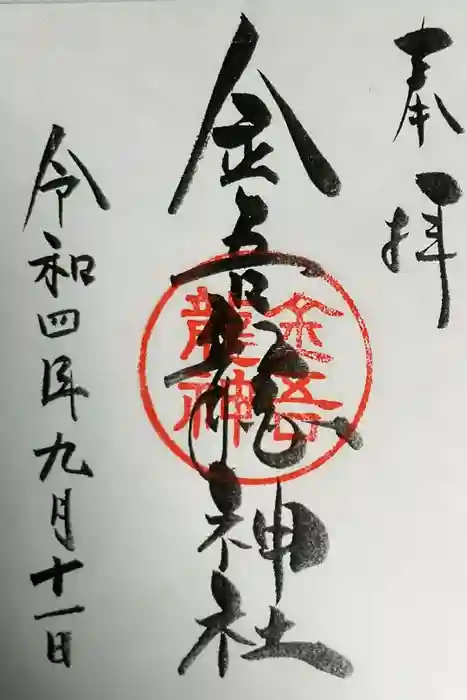 奉拝
金吾龍神社
金吾
龍神
令和四年九月十一日